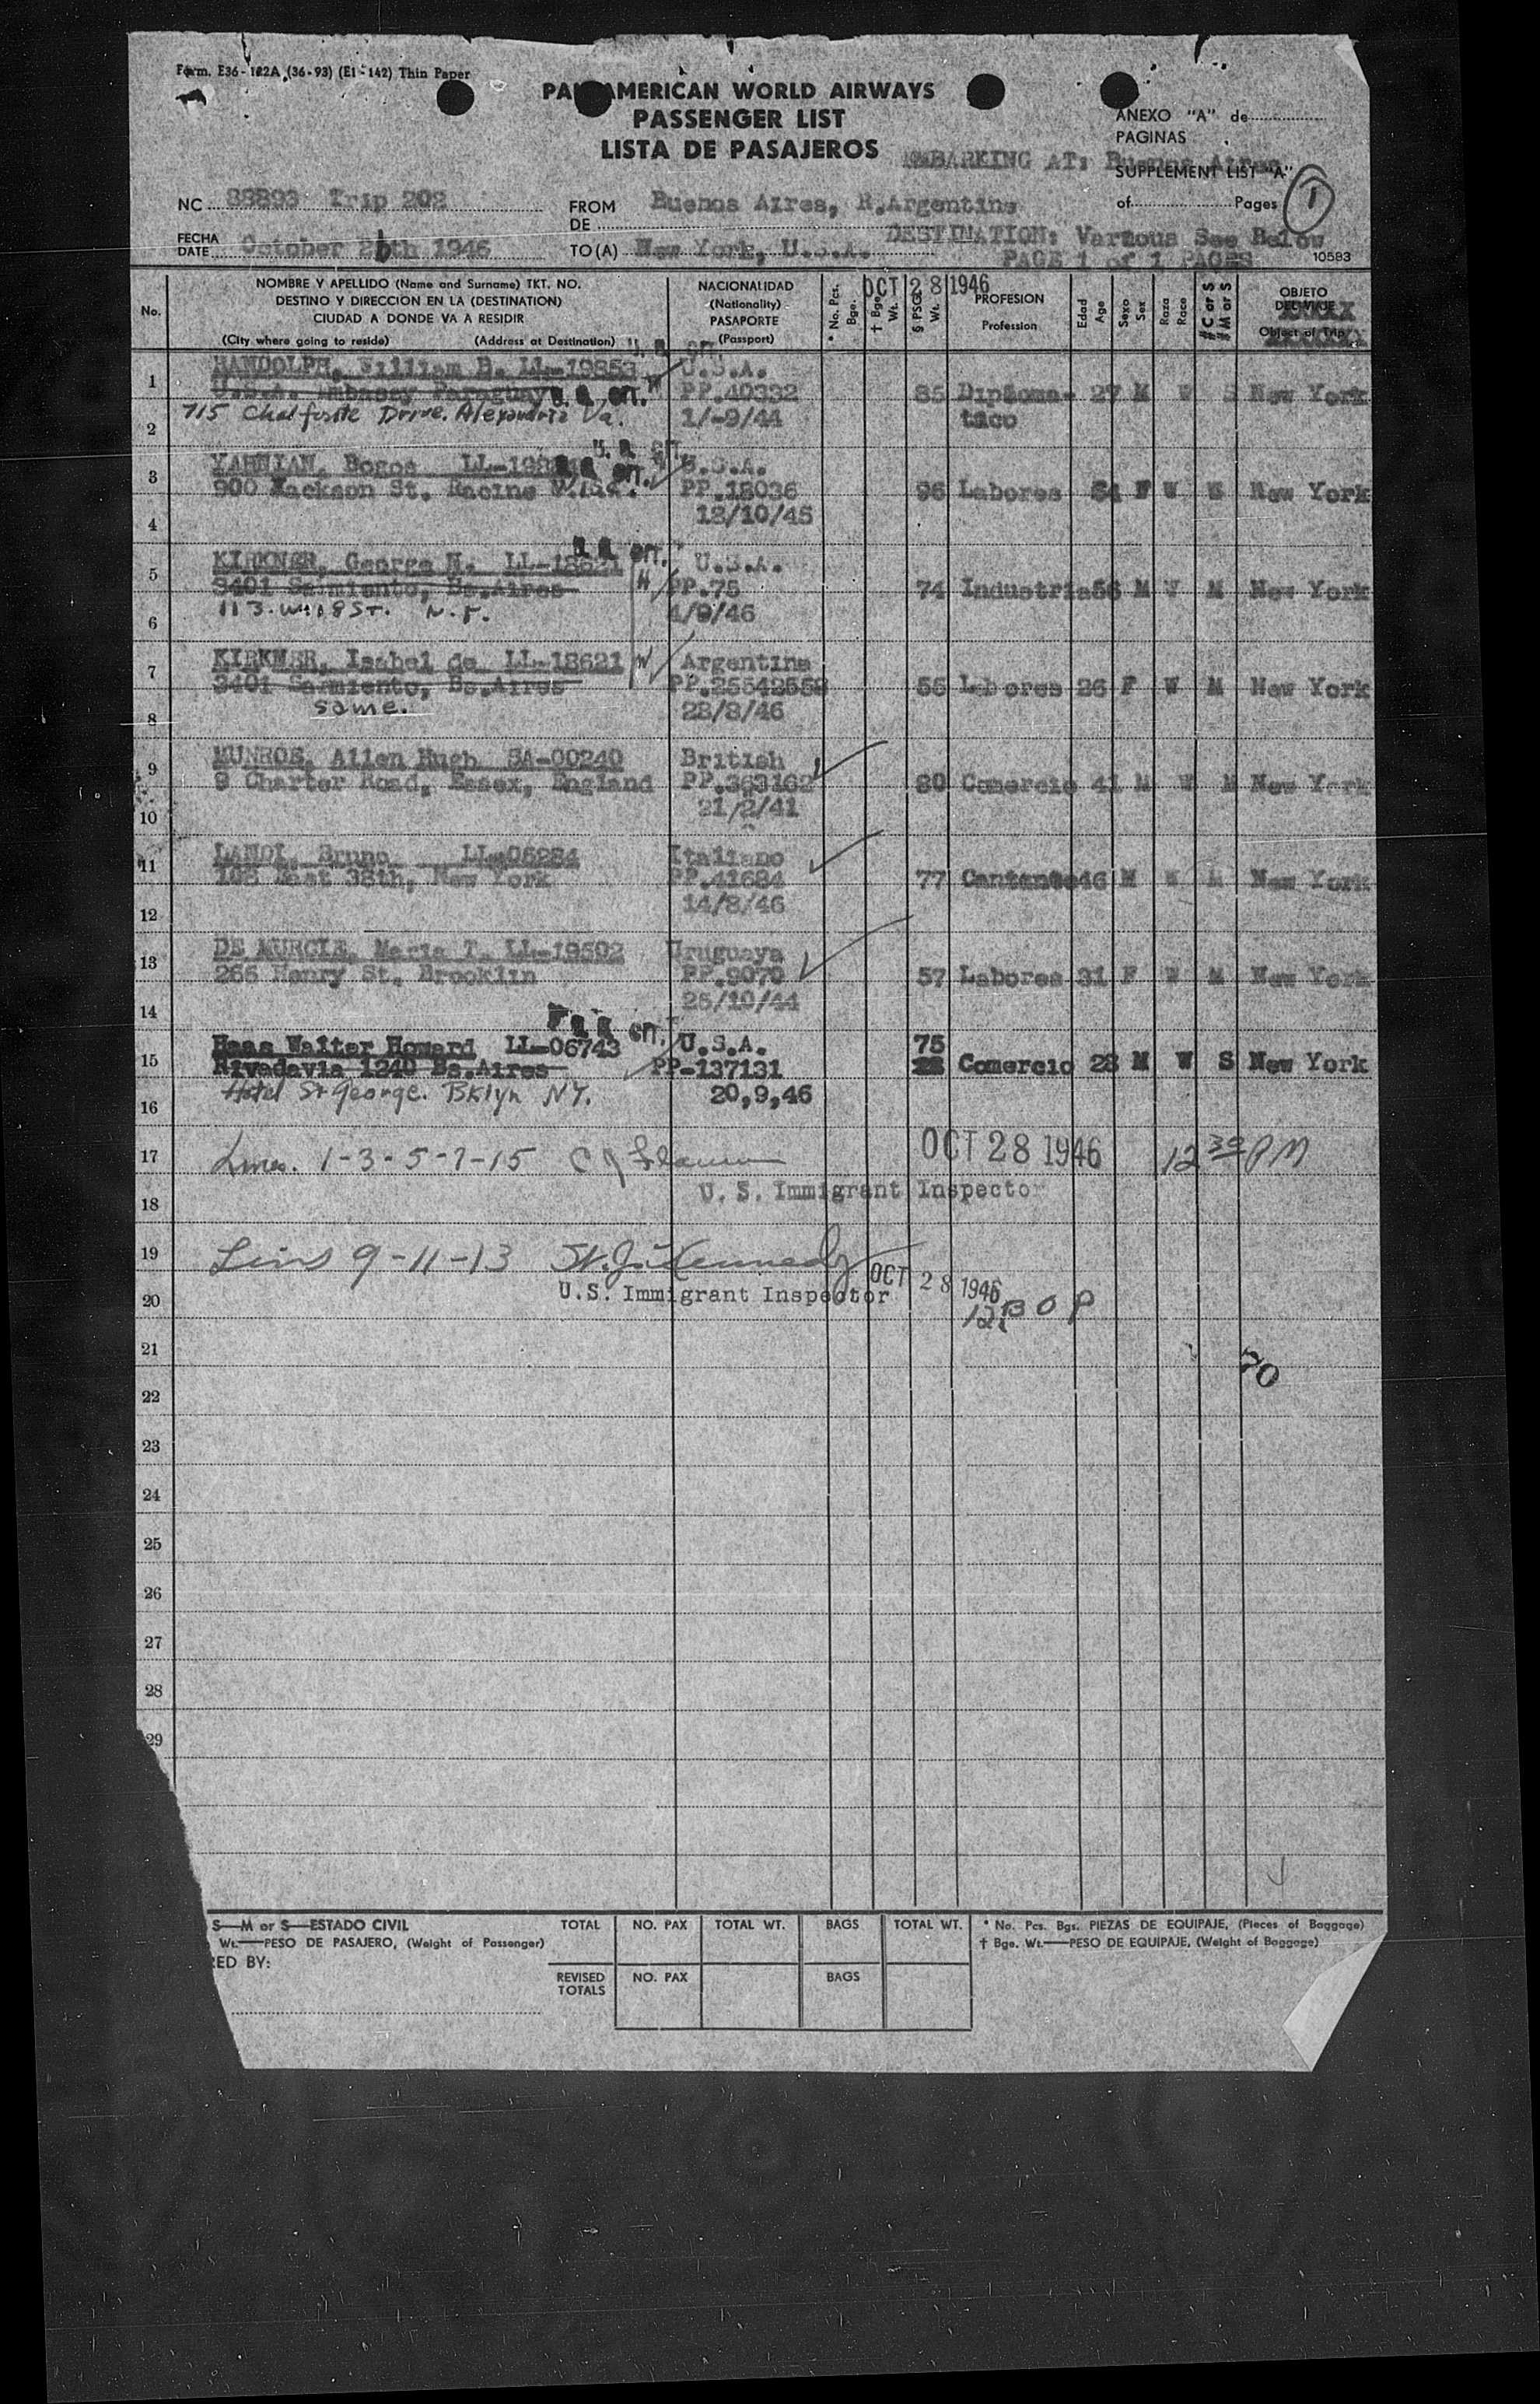 Form. E36-122A (36-93) (E1-142) Thin Paper
PAN AMERICAN WORLD AIRWAYS
PASSENGER LIST
LISTA DE PASAJEROS
ANEXO "A" de
PAGINAS
EMBARKING AT: Buenos Aires
SUPPLEMENT LIST "A"
of Pages 1
NC 88893 Trip 202
FROM
DE
Buenos Aires, R.Argentina
DESTINATION: Various See Below
FECHA
DATE
October 26th 1946
TO (A) New York, U.S.A.
PAGE 1 of 1 PAGES
10583
OCT 28 1946
No.
NOMBRE Y APELLIDO (Name and Surname) TKT. NO.
DESTINO Y DIRECCION EN LA (DESTINATION)
CIUDAD A DONDE VA A RESIDIR
(City where going to reside) (Address at Destination)
NACIONALIDAD
(Nationality)
PASAPORTE
(Passport)
* No. Pcs. Bge.
† Bge. Wt.
§ PSGR Wt.
PROFESION
Profession
Edad
Age
Sexo
Sex
Raza
Race
# C or S
# M or S
OBJETO
DEL VIAJE
Object of Trip
1 RANDOLPH, William B. LL-19853 U.S.A.
U.S.A. Embassy Paraguay PP.40332 85 Diploma- 27 M W S New York
2 715 Chalfonte Drive. Alexandria Va. 1/-9/44 tico
3 YAHNIAN, Bogos U.S.A.
900 Jackson St. Racine PP.18036 96 Labores 54 F W M New York
4 12/10/45
5 KIRKNER, George N. LL-18621 U.S.A.
3401 Sarmiento, Bs.Aires PP.75 74 Industria 56 M W M New York
6 4/9/46
7 KIRKNER, Isabel de LL-18621 Argentina
3401 Sarmiento, Bs.Aires PP.25542558 55 Labores 26 F W M New York
8 same. 28/8/46
9 MUNROE, Allen Hugh SA-00240 British
9 Charter Road, Essex, England PP.363162 80 Comercio 41 M W M New York
10 21/2/41
11 LANDI, Bruno LL-06284 Italiano
108 East 38th, New York PP.41684 77 Cantante 46 M W M New York
12 14/8/46
13 DE MURCIE, Maria T. LL-19502 Uruguaya
266 Henry St. Brooklin PP.9070 57 Labores 31 F W M New York
14 25/10/44
15 Haas Walter Howard LL-06743 U.S.A. 75
Rivadavia 1240 Bs.Aires PP-137131 Comercio 28 M W S New York
16 Hotel St George. Bklyn NY. 20,9,46
17 Lines. 1-3-5-7-15 OCT 28 1946 12 30 PM
18 U. S. Immigrant Inspector
19 Lines 9-11-13 Kennedy OCT 28 1946
20 U.S. Immigrant Inspector 12:30 P
21
70
22
23
24
25
26
27
28
29
S—M or S—ESTADO CIVIL
Wt.—PESO DE PASAJERO, (Weight of Passenger)
RED BY:
TOTAL NO. PAX TOTAL WT. BAGS TOTAL WT.
REVISED
TOTALS
NO. PAX BAGS
* No. Pcs. Bgs. PIEZAS DE EQUIPAJE, (Pieces of Baggage)
† Bge. Wt.—PESO DE EQUIPAJE, (Weight of Baggage)